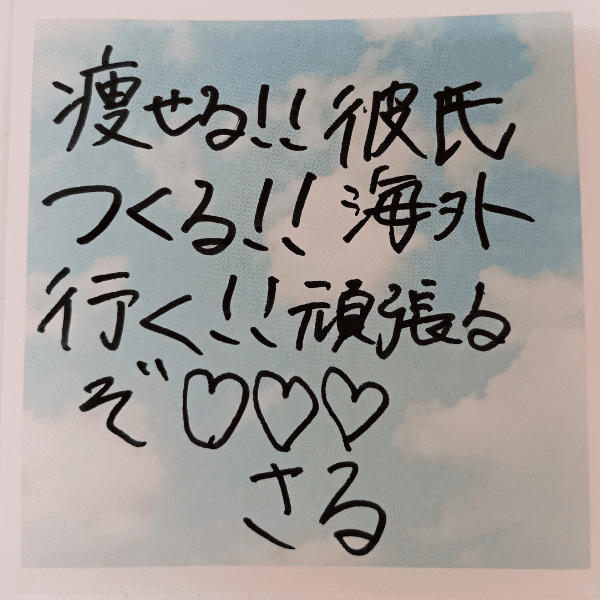 痩せる!!彼氏
つくる!!海外
行く!!頑張る
ぞ♡♡♡
さる